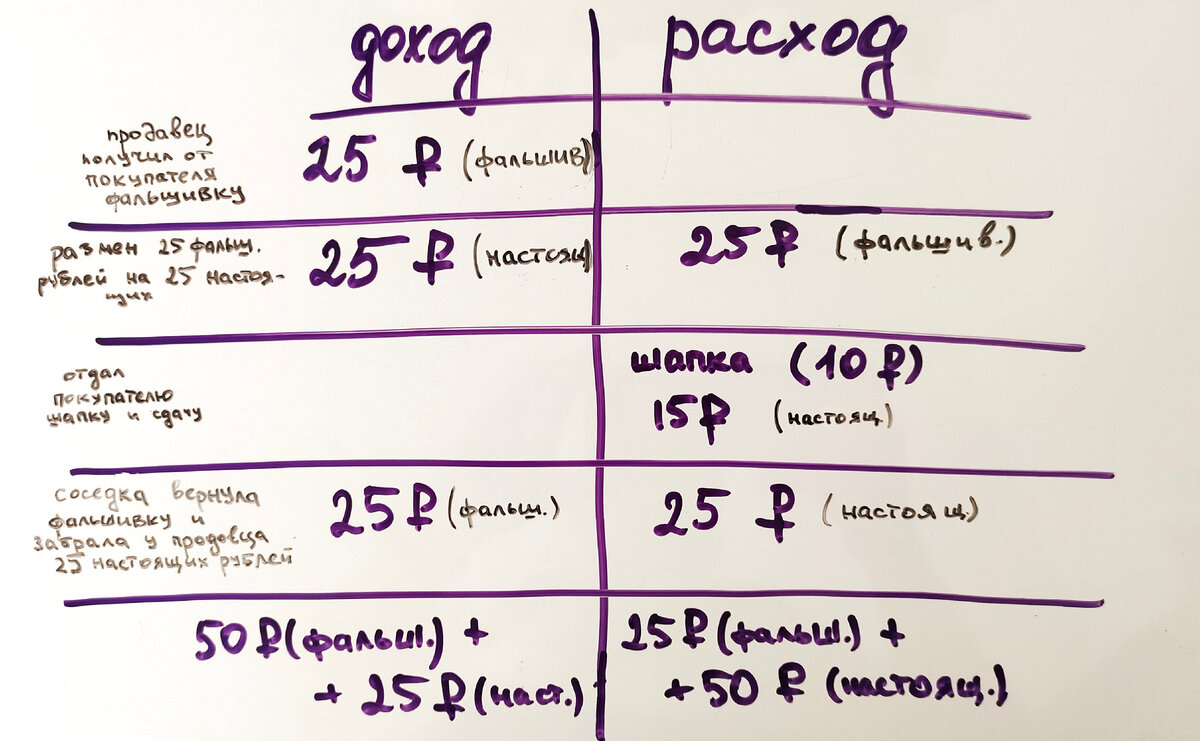 доход
расход
продавец
получил от
покупателя
фальшивку
25 ₽ (фальшив)
размен 25 фальш.
рублей на 25 настоя-
щих
25 ₽ (настоящ)
25 ₽ (фальшив.)
отдал
покупателю
шапку и сдачу
шапка (10 ₽)
15₽ (настоящ.)
соседка вернула
фальшивку и
забрала у продовца
25 настоящих рублей
25₽ (фальш.)
25 ₽ (настоящ.)
50 ₽ (фальш.) +
+ 25 ₽ (наст.)
25 ₽ (фальш.) +
+ 50 ₽ (настоящ.)